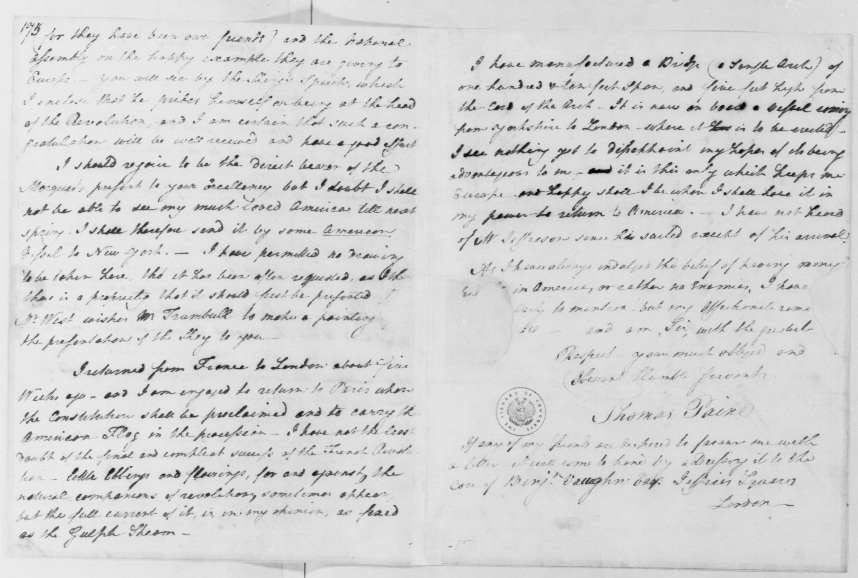 175
for they have been our friends) and the National
Assembly on the happy example they are giving to
Europe — You will see by the King's Speech, which
I enclose that he prides himself on being at the head
of the Revolution, and I am certain that such a con-
gratulation will be well received and have a good effect
I should rejoice to be the direct bearer of the
Marquis's present to your Excellency but I doubt I shall
not be able to see my much loved America till next
spring. I shall therefore send it by some American
Vessel to New York. — I have permitted no drawing
to be taken here, tho' it has been often requested, as I think
there is a propriety that it should first be presented
Mr West wishes Mr Trumbull to make a painting
the presentation of the Key to you —
I returned from France to London about five
Weeks ago — and I am engaged to return to Paris when
the Constitution shall be proclaimed and to carry the
American Flag in the procession — I have not the least
doubt of the final and compleat success of the French Revolu
tion — little Ebbings and flowings, for and against, the
natural companions of revolutions, sometimes appear,
but the full current of it, is, in my opinion, as fixed
as the Gulph Stream —
I have manufactured a Bridge (a Single Arch) of
one hundred & ten feet Span, and five feet high from
the Cord of the Arch — It is now on board a vessel coming
from Yorkshire to London — where it is to be erected —
I see nothing yet to disappoint my hopes of its being
advantageous to me — it is this only which keeps me
Europe — and happy shall I be when I shall have it in
my power to return to America. — I have not heard
of Mr Jefferson since he sailed except of his arrival
As I have always indulged the belief of having many
in America, or rather no Enemies, I have
to mention but my affectionate
— and am Sir, with the greatest
Respect your much obliged and
Obedient Humble Servant
Thomas Paine
LIBRARY OF CONGRESS
If any of my friends are disposed to favour me with
a letter it will come to hand by addressing it to the
Care of Benjn Vaughn Esqr Jeffries Square
London —